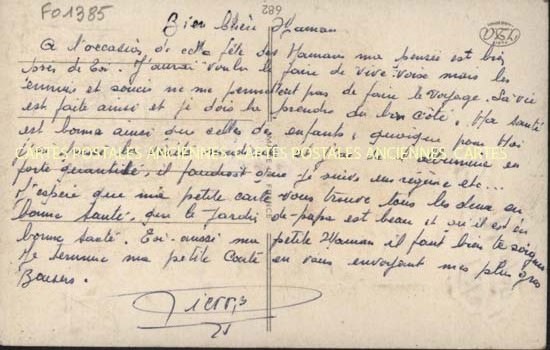 FO1385
682
Bien Chère Maman
A l'occasion de cette fête des Mamans ma pensée est bien
près de Toi. J'aurai voulu le faire de vive voix mais les
ennuis et soucis ne me permettent pas de faire le voyage. La vie
est faite ainsi et je dois la prendre du bon côté. Ma santé
est bonne ainsi que celles des enfants, quoique pour Moi
CARTES POSTALES ANCIENNES CARTES POSTALES ANCIENNES CARTES
forte quantité, il faudrait que je suive un régime etc...
J'espère que ma petite carte vous trouve tous les deux en
bonne santé, que le Jardin de papa est beau et qu'il est en
bonne santé. Toi aussi ma petite Maman il faut bien te soigner
Je termine ma petite carte en vous envoyant mes plus gros
Baisers.